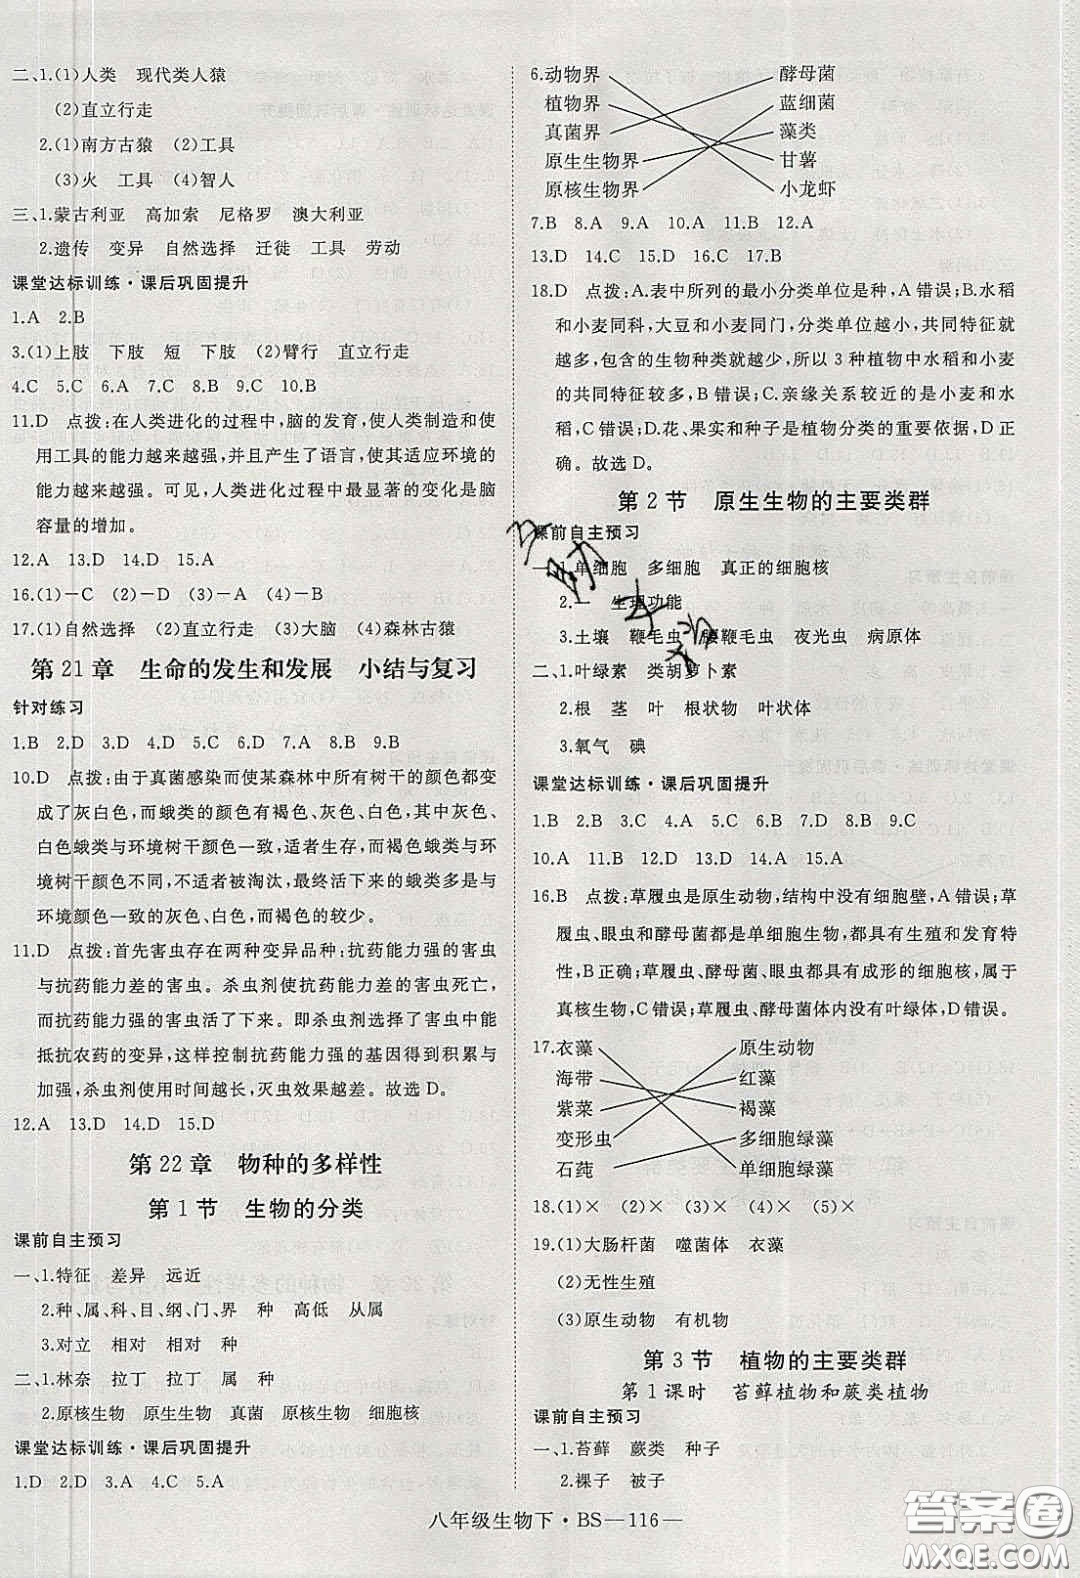 二、1.(1)人类 现代类人猿
(2)直立行走
2.(1)南方古猿 (2)工具
(3)火 工具 (4)智人
三、1.蒙古利亚 高加索 尼格罗 澳大利亚
2.遗传 变异 自然选择 迁徙 工具 劳动
课堂达标训练·课后巩固提升
1.A 2.B
3.(1)上肢 下肢 短 下肢 (2)臂行 直立行走
4.C 5.C 6.A 7.C 8.B 9.C 10.B
11.D 点拨:在人类进化的过程中,脑的发育,使人类制造和使
用工具的能力越来越强,并且产生了语言,使其适应环境的
能力越来越强。可见,人类进化过程中最显著的变化是脑
容量的增加。
12.A 13.D 14.D 15.A
16.(1)－C (2)－D (3)－A (4)－B
17.(1)自然选择 (2)直立行走 (3)大脑 (4)森林古猿
第21章 生命的发生和发展 小结与复习
针对练习
1.B 2.D 3.D 4.D 5.C 6.D 7.A 8.B 9.B
10.D 点拨:由于真菌感染而使某森林中所有树干的颜色都变
成了灰白色,而蛾类的颜色有褐色、灰色、白色,其中灰色、
白色蛾类与环境树干颜色一致,适者生存,而褐色蛾类与环
境树干颜色不同,不适者被淘汰,最终活下来的蛾类多是与
环境颜色一致的灰色、白色,而褐色的较少。
11.D 点拨:首先害虫存在两种变异品种:抗药能力强的害虫
与抗药能力差的害虫。杀虫剂使抗药能力差的害虫死亡,
而抗药能力强的害虫活下来。即杀虫剂选择了害虫中能
抵抗农药的变异,这样控制抗药能力强的基因得到积累与
加强,杀虫剂使用时间越长,灭虫效果越差。故选D。
12.A 13.D 14.D 15.D
第22章 物种的多样性
第1节 生物的分类
课前自主预习
一、1.特征 差异 远近
2.种、属、科、目、纲、门、界 种 高低 从属
3.对立 相对 相对 种
二、1.林奈 拉丁 拉丁 属 种
2.原核生物 原生生物 真菌 原核生物 细胞核
课堂达标训练·课后巩固提升
1.D 2.D 3.A 4.C 5.A
6.动物界 酵母菌
植物界 蓝细菌
真菌界 藻类
原生生物界 甘薯
原核生物界 小龙虾
7.B 8.A 9.A 10.A 11.B 12.A
13.D 14.C 15.C 16.C 17.B
18.D 点拨:A.表中所列的最小分类单位是种,A错误;B.水稻
和小麦同科,大豆和小麦同门,分类单位越小,共同特征就
越多,包含的生物种类就越少,所以3种植物中水稻和小麦
的共同特征较多,B错误;C.亲缘关系较近的是小麦和水
稻,C错误;D.花、果实和种子是植物分类的重要依据,D正
确。故选D。
第2节 原生生物的主要类群
课前自主预习
一、1.单细胞 多细胞 真正的细胞核
2.一 生理功能
3.土壤 鞭毛虫 腰鞭毛虫 夜光虫 病原体
二、1.叶绿素 类胡萝卜素
2.根 茎 叶 根状物 叶状体
3.氧气 碘
课堂达标训练·课后巩固提升
1.B 2.B 3.C 4.A 5.C 6.B 7.D 8.B 9.C
10.A 11.B 12.B 13.D 14.A 15.A
16.B 点拨:草履虫是原生动物,结构中没有细胞壁,A错误;草
履虫、眼虫和酵母菌都是单细胞生物,都具有生殖和发育特
性,B正确;草履虫、酵母菌、眼虫都具有成形的细胞核,属于
真核生物,C错误;草履虫、酵母菌体内没有叶绿体,D错误。
17.衣藻 原生动物
海带 红藻
紫菜 褐藻
变形虫 多细胞绿藻
石莼 单细胞绿藻
18.(1)× (2)× (3)× (4)× (5)×
19.(1)大肠杆菌 噬菌体 衣藻
(2)无性生殖
(3)原生动物 有机物
第3节 植物的主要类群
第1课时 苔藓植物和蕨类植物
课前自主预习
一、1.苔藓 蕨类 种子
2.裸子 被子
八年级生物下·BS—116—
答案圈
MXQE.COM